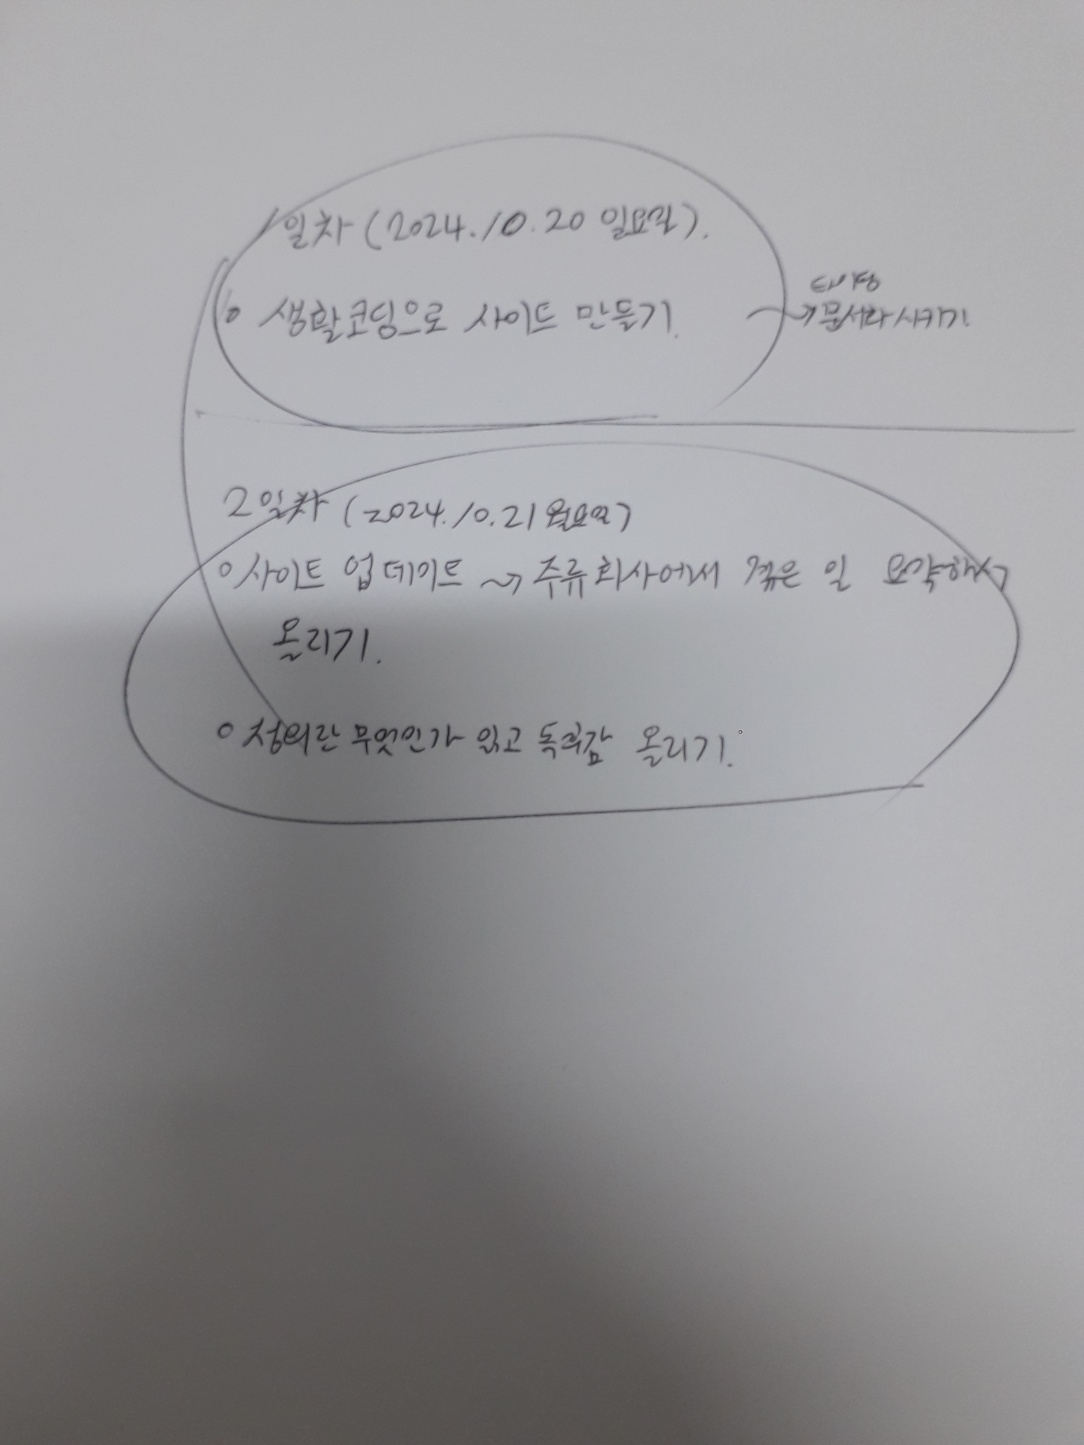 1일차 (2024.10.20 일요일).
o 생활코딩으로 사이트 만들기.
→ 문서화 시키기
2일차 (2024.10.21 월요일)
o 사이트 업데이트 → 주류회사에서 겪은 일 요약해서
올리기.
o 정의란 무엇인가 읽고 독후감 올리기.